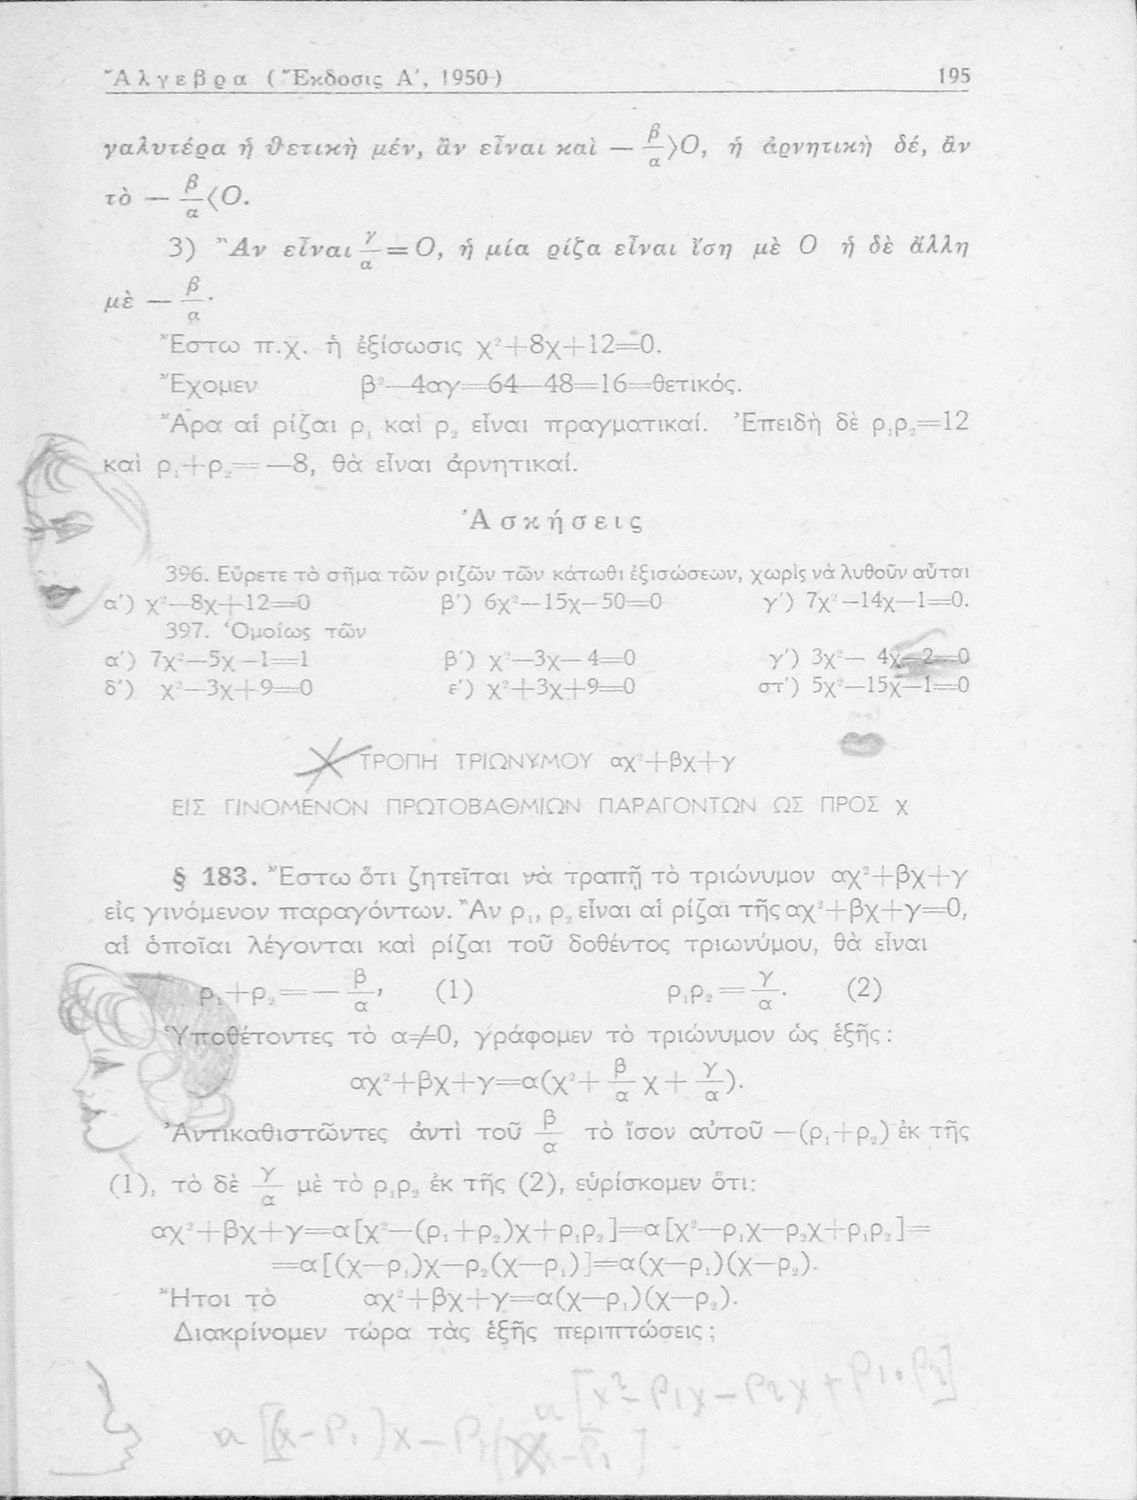 Ἄλγεβρα (Ἔκδοσις Α΄, 1950) 195
γαλυτέρα ἡ θετικὴ μέν, ἂν εἶναι καὶ — β/α〉Ο, ἡ ἀρνητικὴ δέ, ἂν
τὸ — β/α〈Ο.
3) Ἂν εἶναι γ/α = Ο, ἡ μία ρίζα εἶναι ἴση μὲ Ο ἡ δὲ ἄλλη
μὲ — β/α.
Ἔστω π.χ. ἡ ἐξίσωσις χ²+8χ+12=0.
Ἔχομεν β²—4αγ=64—48=16=θετικός.
Ἄρα αἱ ρίζαι ρ₁ καὶ ρ₂ εἶναι πραγματικαί. Ἐπειδὴ δὲ ρ₁ρ₂=12
καὶ ρ₁+ρ₂= —8, θὰ εἶναι ἀρνητικαί.
Ἀσκήσεις
396. Εὕρετε τὸ σῆμα τῶν ριζῶν τῶν κάτωθι ἐξισώσεων, χωρὶς νὰ λυθοῦν αὗται
α΄) χ²—8χ+12=0 β΄) 6χ²—15χ—50=0 γ΄) 7χ²—14χ—1=0.
397. Ὁμοίως τῶν
α΄) 7χ²—5χ—1=1 β΄) χ²—3χ—4=0 γ΄) 3χ²— 4χ—2=0
δ΄) χ²—3χ+9=0 ε΄) χ²+3χ+9=0 στ΄) 5χ²—15χ—1=0
ΤΡΟΠΗ ΤΡΙΩΝΥΜΟΥ αχ²+βχ+γ
ΕΙΣ ΓΙΝΟΜΕΝΟΝ ΠΡΩΤΟΒΑΘΜΙΩΝ ΠΑΡΑΓΟΝΤΩΝ ΩΣ ΠΡΟΣ χ
§ 183. Ἔστω ὅτι ζητεῖται νὰ τραπῇ τὸ τριώνυμον αχ²+βχ+γ
εἰς γινόμενον παραγόντων. Ἂν ρ₁, ρ₂ εἶναι αἱ ρίζαι τῆς αχ²+βχ+γ=0,
αἱ ὁποῖαι λέγονται καὶ ρίζαι τοῦ δοθέντος τριωνύμου, θὰ εἶναι
ρ₁+ρ₂=— β/α, (1) ρ₁ρ₂= γ/α. (2)
Ὑποθέτοντες τὸ α≠0, γράφομεν τὸ τριώνυμον ὡς ἑξῆς:
αχ²+βχ+γ=α(χ²+ β/α χ+ γ/α).
Ἀντικαθιστῶντες ἀντὶ τοῦ β/α τὸ ἴσον αὐτοῦ —(ρ₁+ρ₂) ἐκ τῆς
(1), τὸ δὲ γ/α μὲ τὸ ρ₁ρ₂ ἐκ τῆς (2), εὑρίσκομεν ὅτι:
αχ²+βχ+γ=α[χ²—(ρ₁+ρ₂)χ+ρ₁ρ₂]=α[χ²—ρ₁χ—ρ₂χ+ρ₁ρ₂]=
=α[(χ—ρ₁)χ—ρ₂(χ—ρ₁)]=α(χ—ρ₁)(χ—ρ₂).
Ἤτοι τὸ αχ²+βχ+γ=α(χ—ρ₁)(χ—ρ₂).
Διακρίνομεν τώρα τὰς ἑξῆς περιπτώσεις:
α[χ²—ρ₁χ—ρ₂χ+ρ₁.ρ₂]